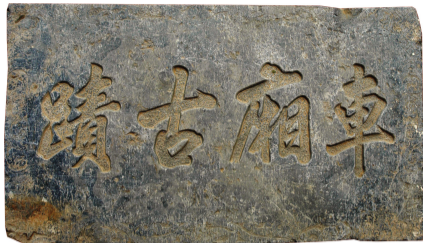 車廂古蹟